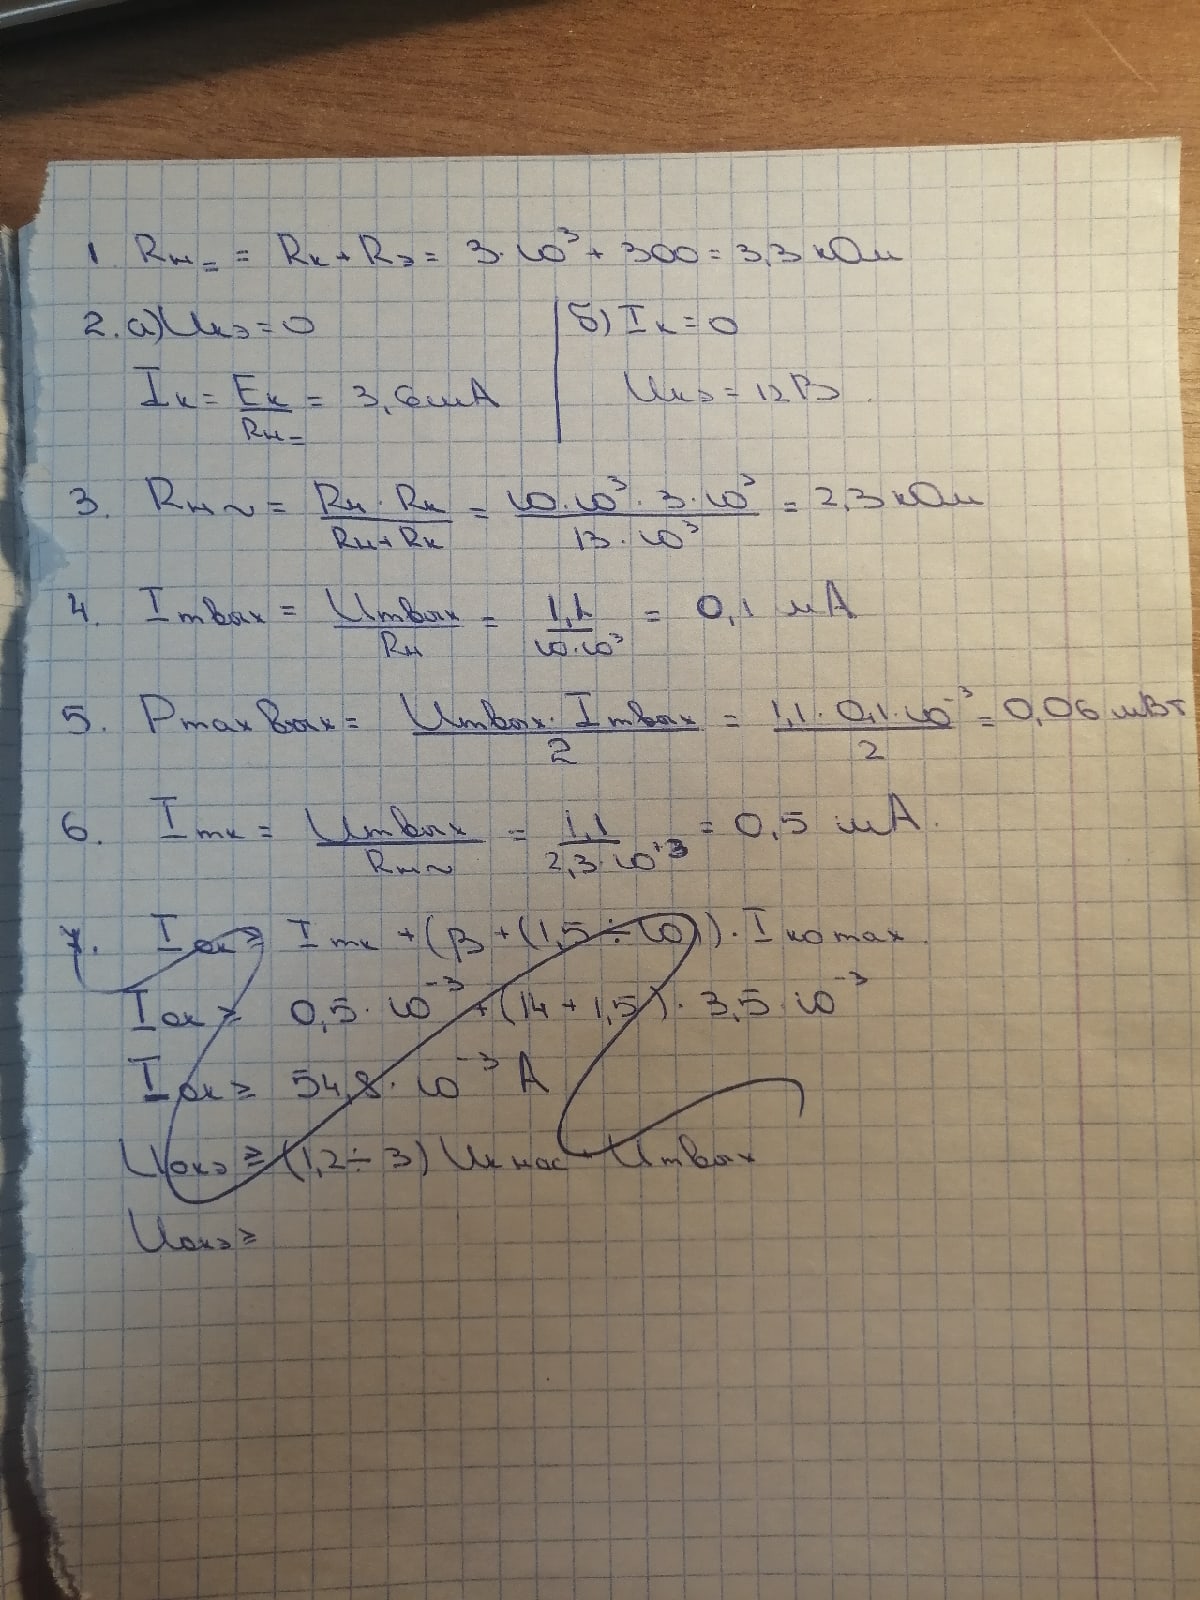 1. Rн= = Rк + Rэ = 3·10³ + 300 = 3,3 кОм
2. а) Uкэ = 0 б) Iк = 0
Iк = Eк / Rн= = 3,6 мА Uкэ = 12 В
3. Rн~ = Rн · Rк / Rн + Rк = 10·10³ · 3·10³ / 13·10³ = 2,3 кОм
4. Imвых = Umвых / Rн = 1,1 / 10·10³ = 0,1 мА
5. Pmax вых = Umвых · Imвых / 2 = 1,1 · 0,1·10⁻³ / 2 = 0,06 мВт
6. Imк = Umвых / Rн~ = 1,1 / 2,3·10⁺³ = 0,5 мА.
7. Iок ≥ Imк + (β + (1,5 ÷ 10)) · Iко max
Iок ≥ 0,5·10⁻³ + (14 + 1,5) · 3,5·10⁻³
Iок ≥ 54,8·10⁻³ А
Uокэ ≥ (1,2 ÷ 3) Uк нас + Umвых
Uокэ ≥